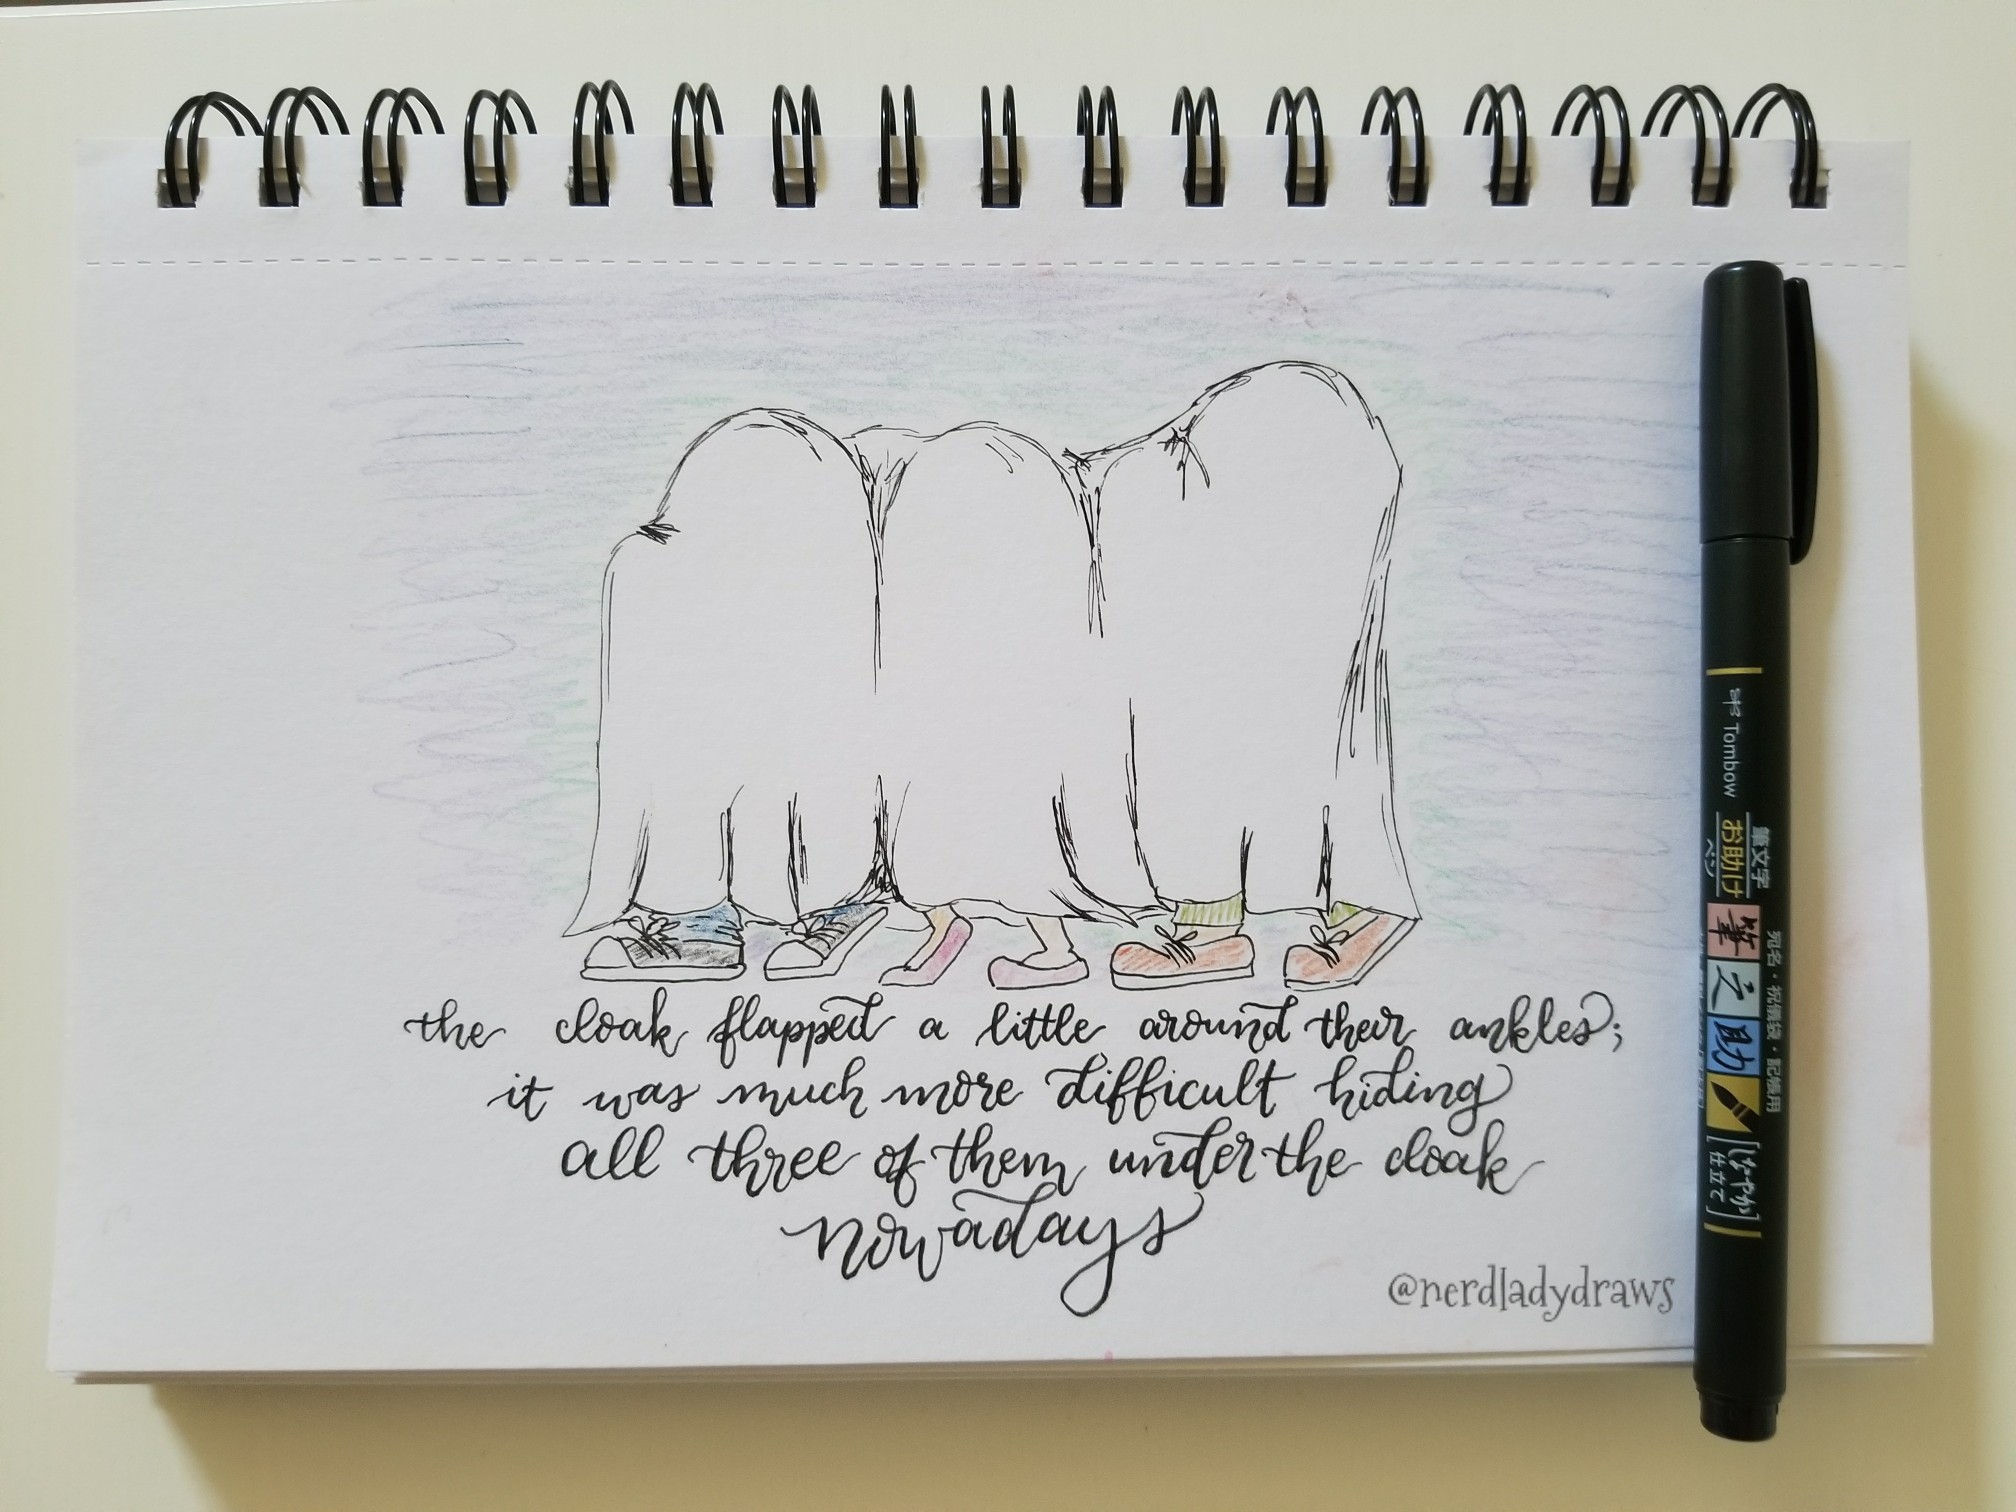 the cloak flapped a little around their ankles;
it was much more difficult hiding
all three of them under the cloak
nowadays
@nerdladydraws
Tombow
筆文字
お助け
ペン
筆之助
しなやか
仕立て